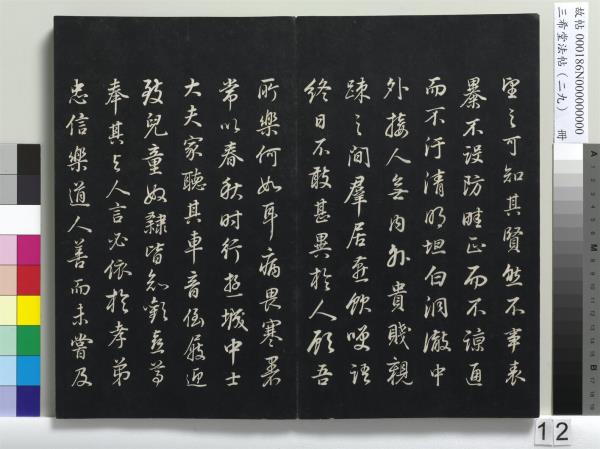 望之可知其賢然不事表
襮不設防畦正而不諒通
而不汙清明坦白洞澈中
外接人無內外貴賤親
疎之間羣居燕飲笑語
終日不取甚異於人顧吾
所樂何如耳病畏寒暑
常以春秋时行遊城中士
大夫家聽其車音倒屣迎
致兒童奴隸皆知歡喜尊
奉其与人言必依於孝弟
忠信樂道人善而未嘗及
故帖 000186N000000000
三希堂法帖（二九） 冊
12